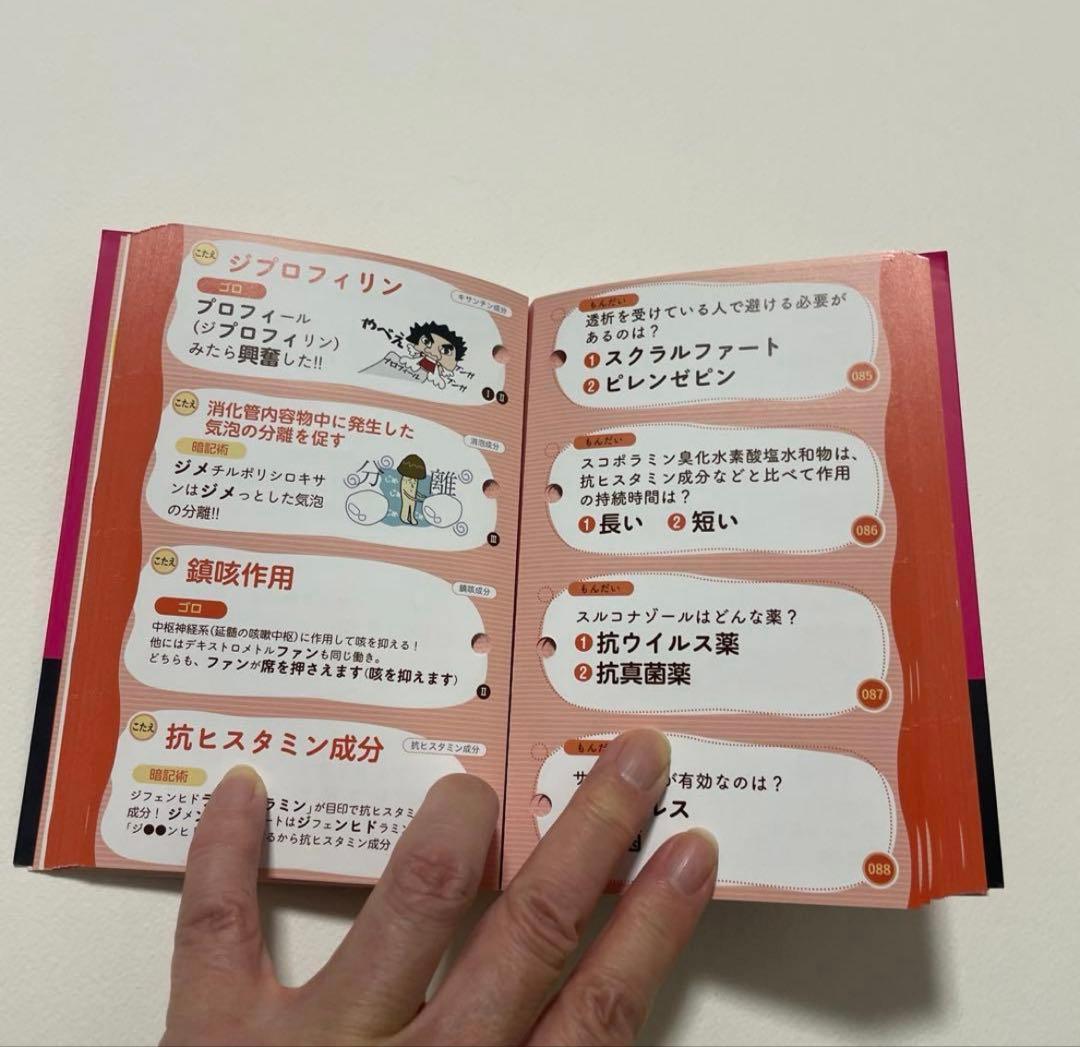 こたえ
ジプロフィリン
キサンチン成分
ゴロ
プロフィール
(ジプロフィリン)
みたら興奮した!!
やべえ
プロフィール
I II
こたえ
消化管内容物中に発生した
気泡の分離を促す
消泡成分
暗記術
ジメチルポリシロキサ
ンはジメっとした気泡
の分離!!
分離
III
こたえ
鎮咳作用
鎮咳成分
ゴロ
中枢神経系(延髄の咳嗽中枢)に作用して咳を抑える!
他にはデキストロメトルファンも同じ働き。
どちらも、ファンが席を押さえます(咳を抑えます)
II
こたえ
抗ヒスタミン成分
抗ヒスタミン成分
暗記術
ジフェンヒド ラミン」が目印で抗ヒスタミ
成分! ジメン ートはジフェンヒドラミン
「ジ●●ンヒ るから抗ヒスタミン成分
もんだい
透析を受けている人で避ける必要が
あるのは?
1 スクラルファート
2 ピレンゼピン
085
もんだい
スコポラミン臭化水素酸塩水和物は、
抗ヒスタミン成分などと比べて作用
の持続時間は?
1 長い 2 短い
086
もんだい
スルコナゾールはどんな薬?
1 抗ウイルス薬
2 抗真菌薬
087
もんだ
が有効なのは?
ルス
088